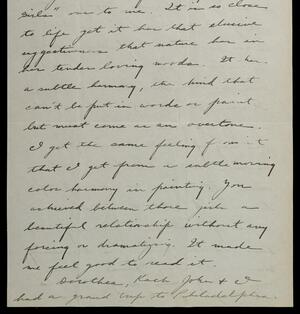 Girls" one to me. It is so close
to life yet it has that elusive
suggestiveness that nature has in
her tender loving moods. It has
a subtle harmony, the kind that
can't be put in words or paint
but must come as an overtone.
I get the same feeling from it
that I get from a subtle moving
color harmony in painting. You
achieved between those girls a
beautiful relationship without any
forcing or dramatizing. It made
me feel good to read it.
Dorothea, John & I
had a grand trip to Philadelphia.